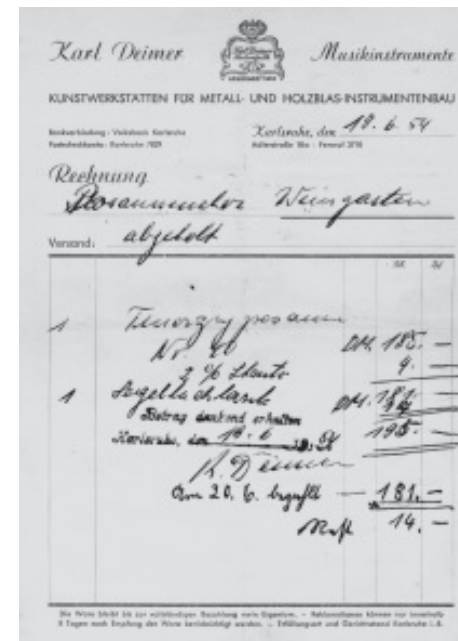 Karl Deimer Musikinstrumente
KUNSTWERKSTÄTTEN FÜR METALL- UND HOLZBLAS-INSTRUMENTENBAU
Bankverbindung: Volksbank Karlsruhe
Karlsruhe, den 19. 6. 54
Rechnung
Posaunenchor Weingarten
Versand: abgeholt
1 Tenorzugposaune
DM. 185.—
2 % Skonto 4.—
1 DM. 181.—
Betrag dankend erhalten
195.—
Karlsruhe, den 19. 6. 1954
K. Deimer
Am 20. 6. bezahlt — 181.—
Rest 14.—
Die Ware bleibt bis zur vollständigen Bezahlung mein Eigentum. – Reklamationen können nur innerhalb
8 Tagen nach Empfang der Ware berücksichtigt werden. – Erfüllungsort und Gerichtsstand Karlsruhe i. B.